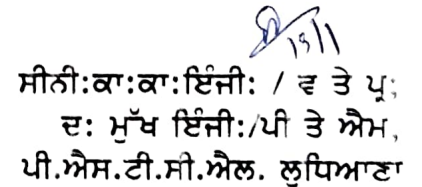 19/1
ਸੀਨੀ:ਕਾ:ਕਾ:ਇੰਜੀ: / ਵ ਤੇ ਪ੍ਰ;
ਦ: ਮੁੱਖ ਇੰਜੀ:/ਪੀ ਤੇ ਐਮ,
ਪੀ.ਐਸ.ਟੀ.ਸੀ.ਐਲ. ਲੁਧਿਆਣਾ